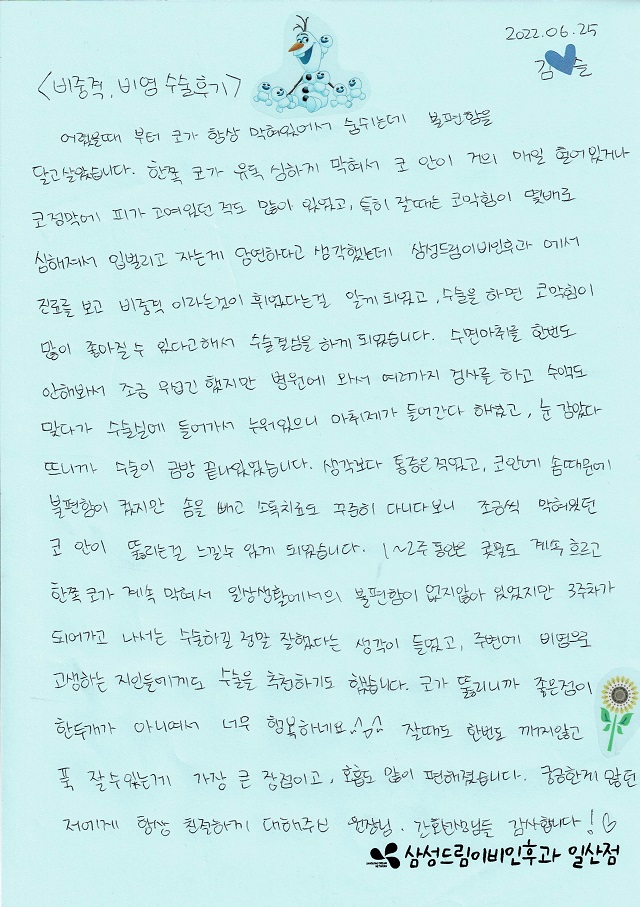 2022.06.25
김 슬
<비중격, 비염 수술후기>
어렸을때 부터 코가 항상 막혀있어서 숨쉬는데 불편함을
달고살았습니다. 한쪽 코가 유독 심하게 막혀서 코 안이 거의 매일 헐어있거나
코점막에 피가 고여있던 적도 많이 있었고, 특히 잘때는 코막힘이 몇배로
심해져서 입벌리고 자는게 당연하다고 생각했는데 삼성드림이비인후과 에서
진료를 보고 비중격 이라는것이 휘었다는걸 알게 되었고, 수술을 하면 코막힘이
많이 좋아질 수 있다고해서 수술결심을 하게 되었습니다. 수면마취를 한번도
안해봐서 조금 무섭긴 했지만 병원에 와서 여러가지 검사를 하고 수액도
맞다가 수술실에 들어가서 누워있으니 마취제가 들어간다 하셨고, 눈 감았다
뜨니까 수술이 금방 끝나있었습니다. 생각보다 통증은 적었고, 코안에 솜때문에
불편함이 컸지만 솜을 빼고 소독치료도 꾸준히 다니다보니 조금씩 막혀있던
코 안이 뚫리는걸 느낄수 있게 되었습니다. 1~2주 동안은 콧물도 계속 흐르고
한쪽 코가 계속 막혀서 일상생활에서의 불편함이 없지않아 있었지만 3주차가
되어가고 나서는 수술하길 정말 잘했다는 생각이 들었고, 주변에 비염으로
고생하는 지인들에게도 수술을 추천하기도 했습니다. 코가 뚫리니까 좋은점이
한두개가 아니여서 너무 행복하네요^^ 잘때도 한번도 깨지않고
푹 잘수있는게 가장 큰 장점이고, 호흡도 많이 편해졌습니다. 궁금한게 많던
저에게 항상 친절하게 대해주신 원장님. 간호선생님들 감사합니다!♡
삼성드림이비인후과 일산점